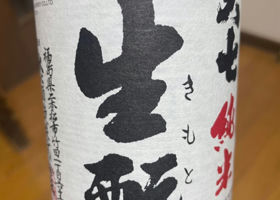 大七 純米
きもと
生酛
福島県二本松市竹田一丁目
CO.,LTD